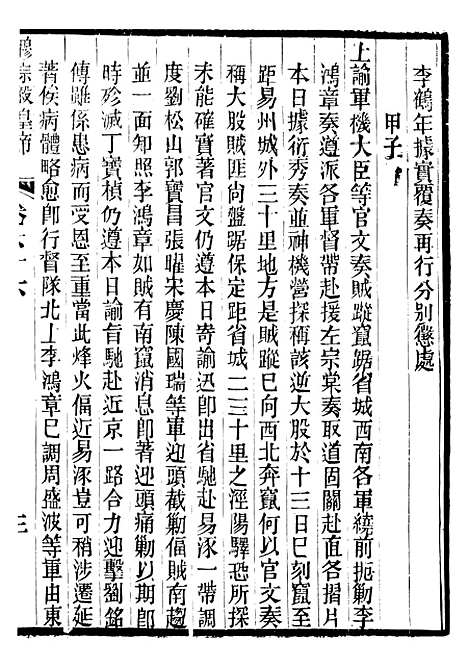 李鶴年據實覆奏再行分別懲處
甲子
上諭軍機大臣等官文奏賊蹤竄踞省城西南各軍繞前扼勦李
鴻章奏遵派各軍督帶赴援左宗棠奏取道固關赴直各摺片
本日據衍秀奏並神機營探稱該逆大股於十三日巳刻竄至
距易州城外三十里地方是賊蹤已向西北奔竄何以官文奏
稱大股賊匪尚盤踞保定距省城二三十里之涇陽驛恐所探
未能確實著官文仍遵本日寄諭迅即出省馳赴易涿一帶調
度劉松山郭寶昌張曜宋慶陳國瑞等軍迎頭截勦偪賊南趨
並一面知照李鴻章如賊有南竄消息即著迎頭痛勦以期即
時殄滅丁寶楨仍遵本日諭旨馳赴近京一路合力迎擊劉銘
傳雖係患病而受恩至重當此烽火偪近易涿豈可稍涉遷延
著俟病體略愈即行督隊北上李鴻章已調周盛波等軍由東
穆宗毅皇帝
卷六十六
三